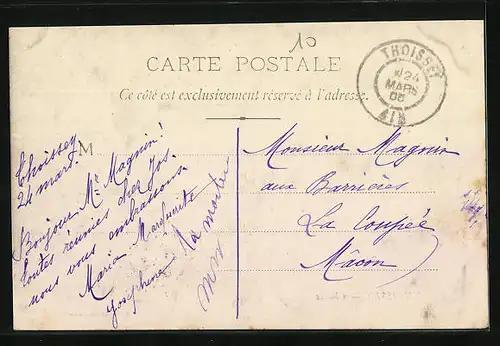 10
CARTE POSTALE
Ce côté est exclusivement réservé à l'adresse.
THOISSEY
24
MARS
AIN
M
Thoissey
24 mars.
Bonjour Mr Magnin!
toutes réunies chez Jos.
nous vous embrassons.
Maria Marguerite
Joséphine
Monsieur Magnin
aux Barrières
La Coupée
Mâcon